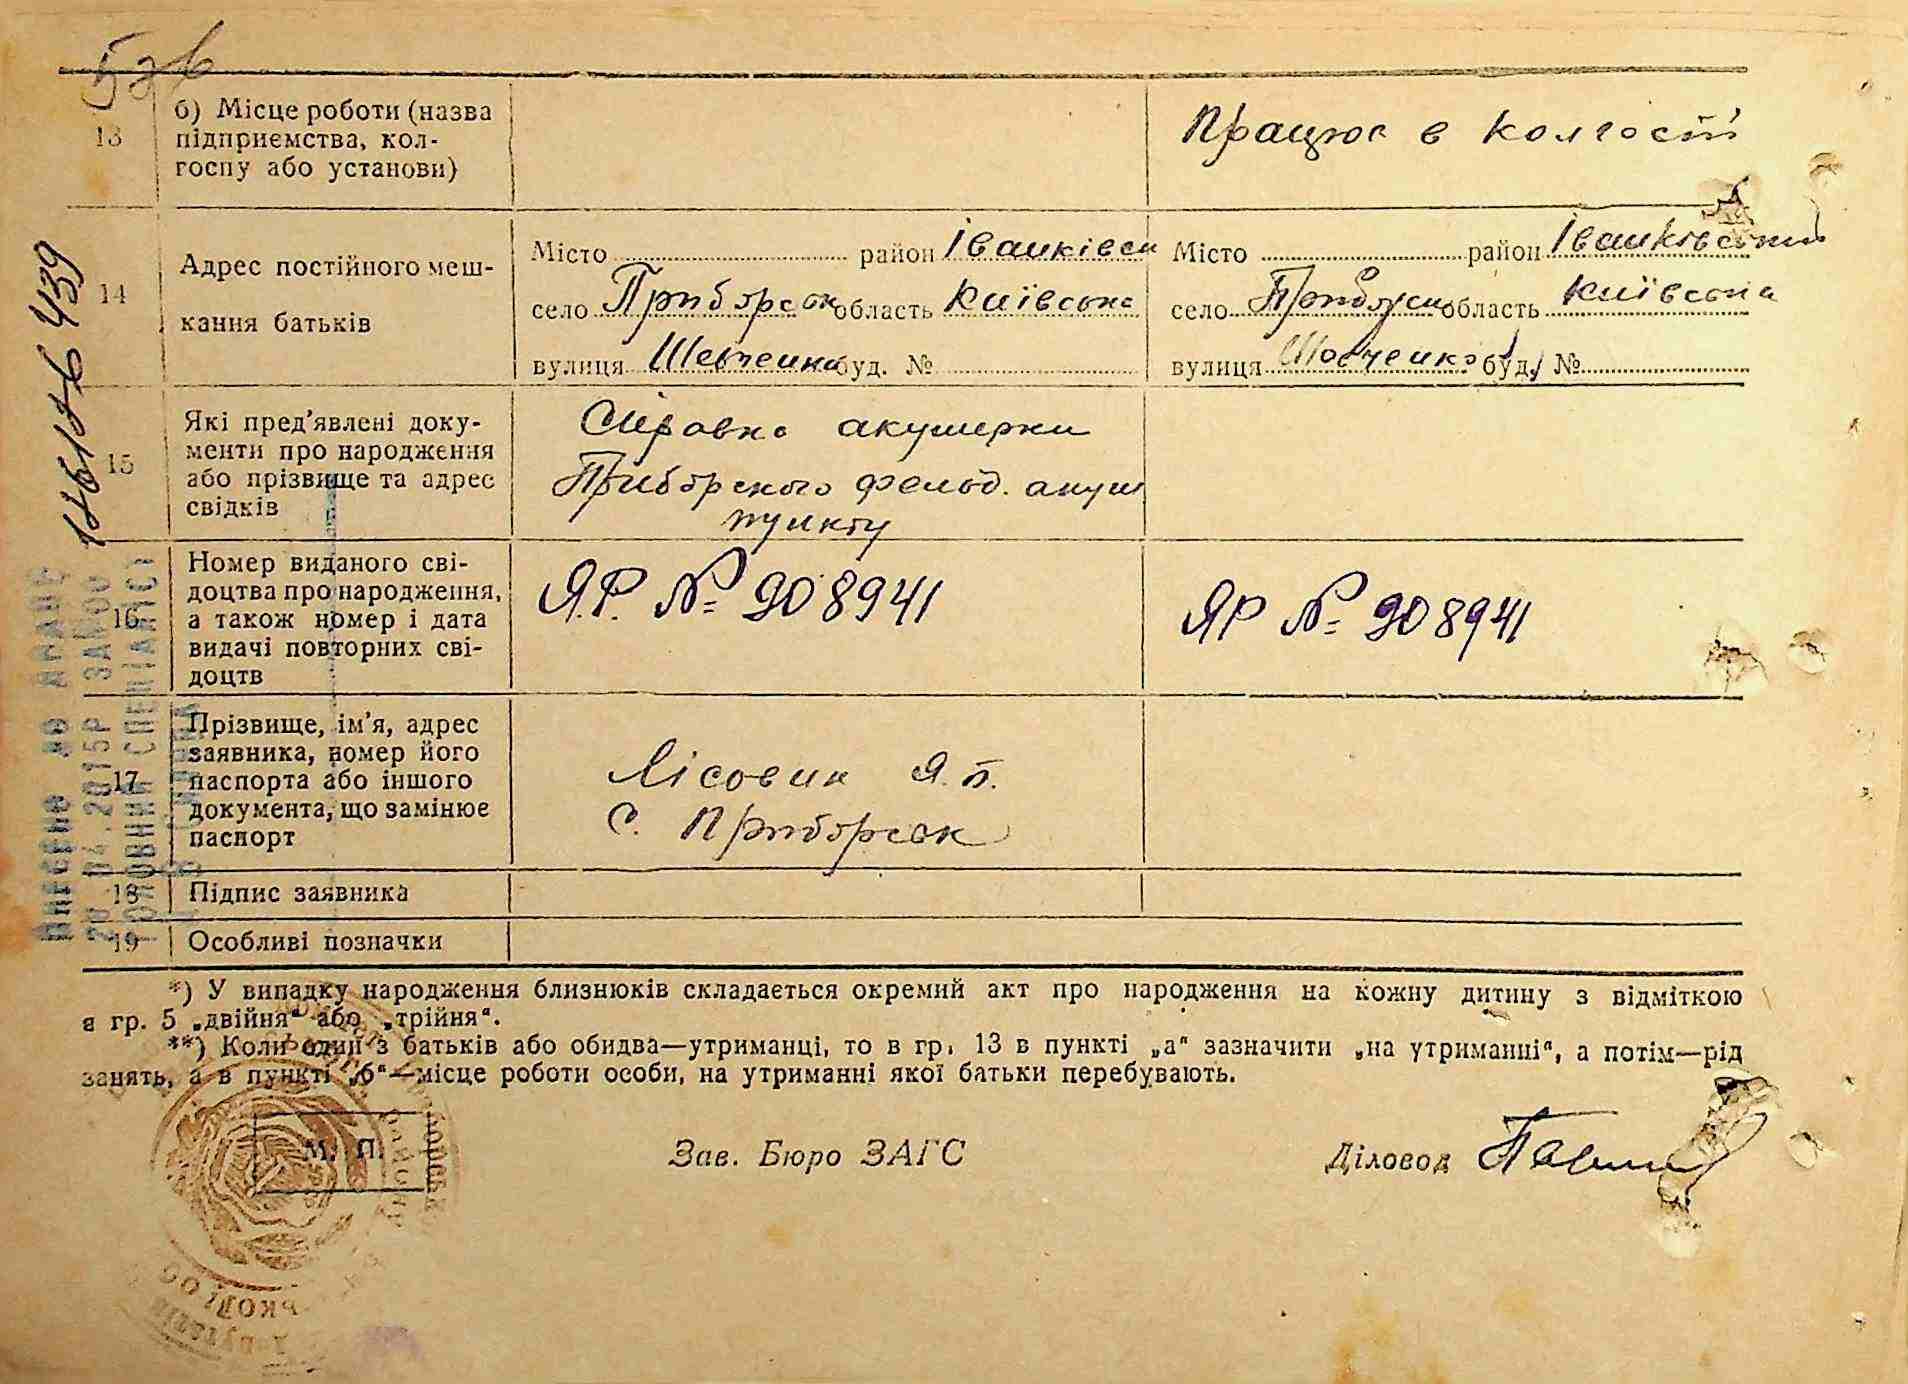 13 б) Місце роботи (назва
підприємства, кол-
госпу або установи)
Працює в колгоспі
14 Адрес постійного меш-
кання батьків
Місто район Іванківськ
село Приборськ область Київська
вулиця Шевченка буд. №
Місто район Іванківський
село Приборськ область Київська
вулиця Шевченко буд. №
15 Які пред'явлені доку-
менти про народження
або прізвище та адрес
свідків
Справка акушерки
Приборского фельд. акуш
пункту
16 Номер виданого сві-
доцтва про народження,
а також номер і дата
видачі повторних сві-
доцтв
Я.Р. № 908941
ЯР № 908941
17 Прізвище, ім'я, адрес
заявника, номер його
паспорта або іншого
документа, що замінює
паспорт
Лісовик Я.П.
с. Приборськ
18 Підпис заявника
19 Особливі позначки
*) У випадку народження близнюків складається окремий акт про народження на кожну дитину з відміткою
в гр. 5 „двійня“ або „трійня“.
**) Коли один з батьків або обидва—утриманці, то в гр. 13 в пункті „а“ зазначити „на утриманні“, а потім—рід
занять, а в пункті „б“—місце роботи особи, на утриманні якої батьки перебувають.
М. П.
Зав. Бюро ЗАГС
Діловод
ВНЕСЕНО ДО ДРАЦС
ГОЛОВНИЙ СПЕЦІАЛІСТ